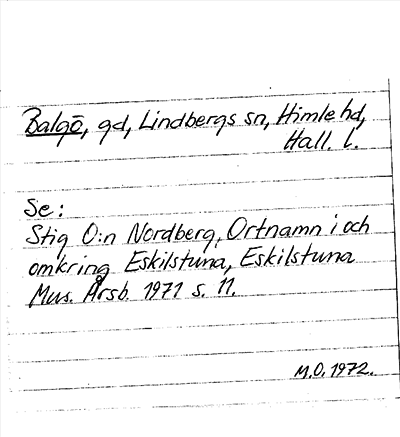 Balgö, gd, Lindbergs sn, Himle hd,
Hall. l.
Se:
Stig O:n Nordberg, Ortnamn i och
omkring Eskilstuna, Eskilstuna
Mus. Årsb. 1971 s. 11.
M.O. 1972.